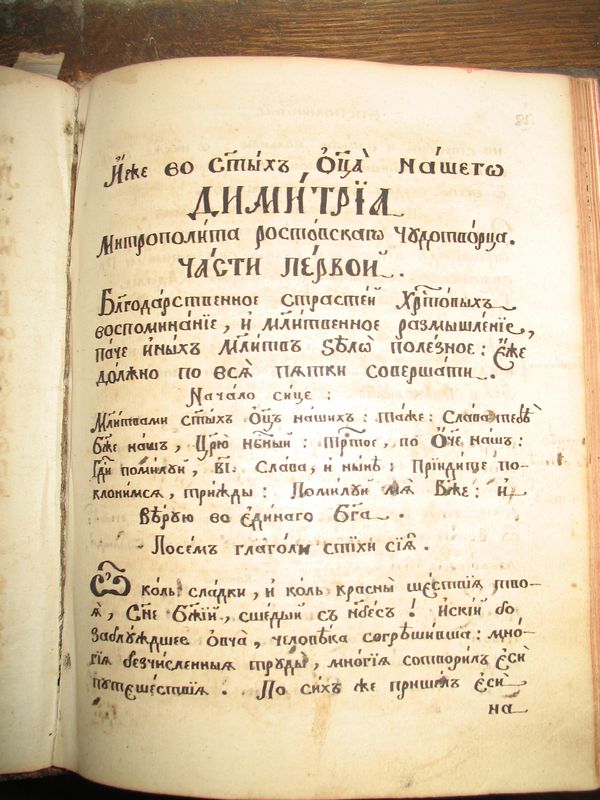 И҆́же во ст҃ы́хъ Ѻ҆ц҃а̀ на́шегѡ
ДИМИ́ТРЇА
Митрополи́та росто́вскагѡ чꙋдотво́рца.
ЧА́СТИ ПЕ́РВОЙ.
Блг҃ода́рственное страсте́й Хрⷭ҇то́выхъ
воспомина́нїе, и҆ мл҃и́твенное размышле́нїе,
па́че и҆ны́хъ мл҃и́твъ ѕѣлѡ̀ поле́зное: є҆́же
до́лжно по всѧ̑ пѧткѝ соверша́ти.
Нача́ло си́це:
Мл҃и́твами ст҃ы́хъ ѻ҆ц҃ъ на́шихъ: та́же: Сла́ва тебѣ̀
бж҃е на́шъ, Цр҃ю̀ нбⷭ҇ный: трⷭ҇то́е, по Ѻ҆́ч҃е на́шъ:
Гдⷭ҇и поми́лꙋй, в҃і. Сла́ва, и҆ ны́нѣ: Прїиди́те по-
клони́мсѧ, три́жды: Поми́лꙋй мѧ̀ Бж҃е: и҆
Вѣ́рꙋю во є҆ди́наго Бг҃а.
Посе́мъ глаго́ли стїхѝ сїѧ̑.
Ѽ ко́ль сла́дки, и҆ ко́ль красны̀ ше́ствїѧ твоѧ̑-
ѧ҆̀, Сн҃е Бж҃їй, сше́дый съ нб҃е́съ! и҆ски́й бо
заблꙋ́ждшее ѻ҆вча̀, человѣ́ка согрѣши́вша: мнѡ́-
гїѧ безчи́сленныѧ трꙋды̀, мнѡ́гїѧ сотвори́лъ є҆сѝ
пꙋтеше́ствїѧ. По си́хъ же прише́лъ є҆сѝ
на